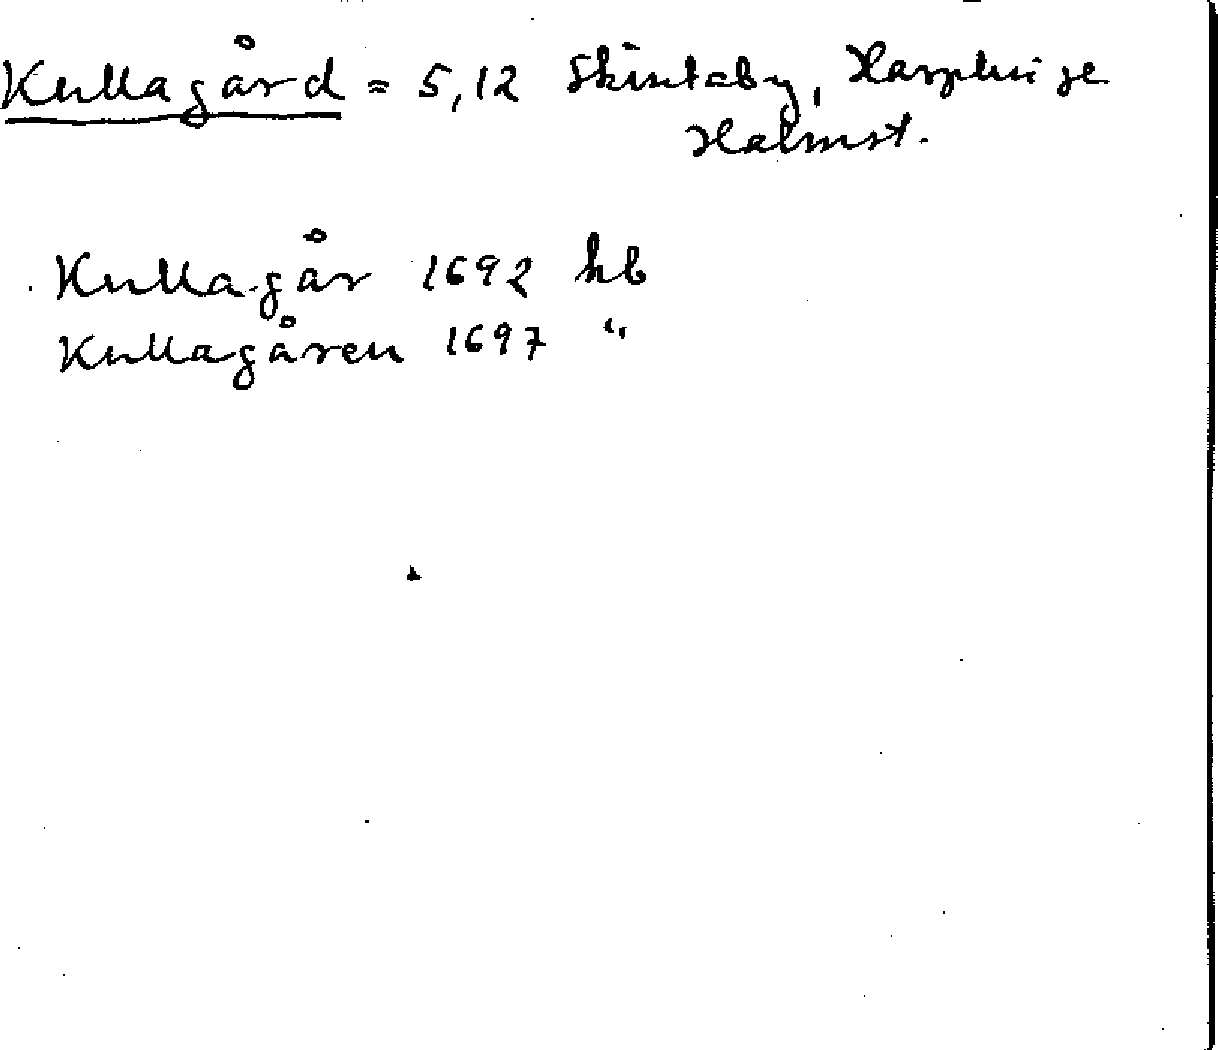 Kullagård = 5,12 Skintaby, Harplinge
Halmst.
Kullagår 1692 kb
Kullagåren 1697 "